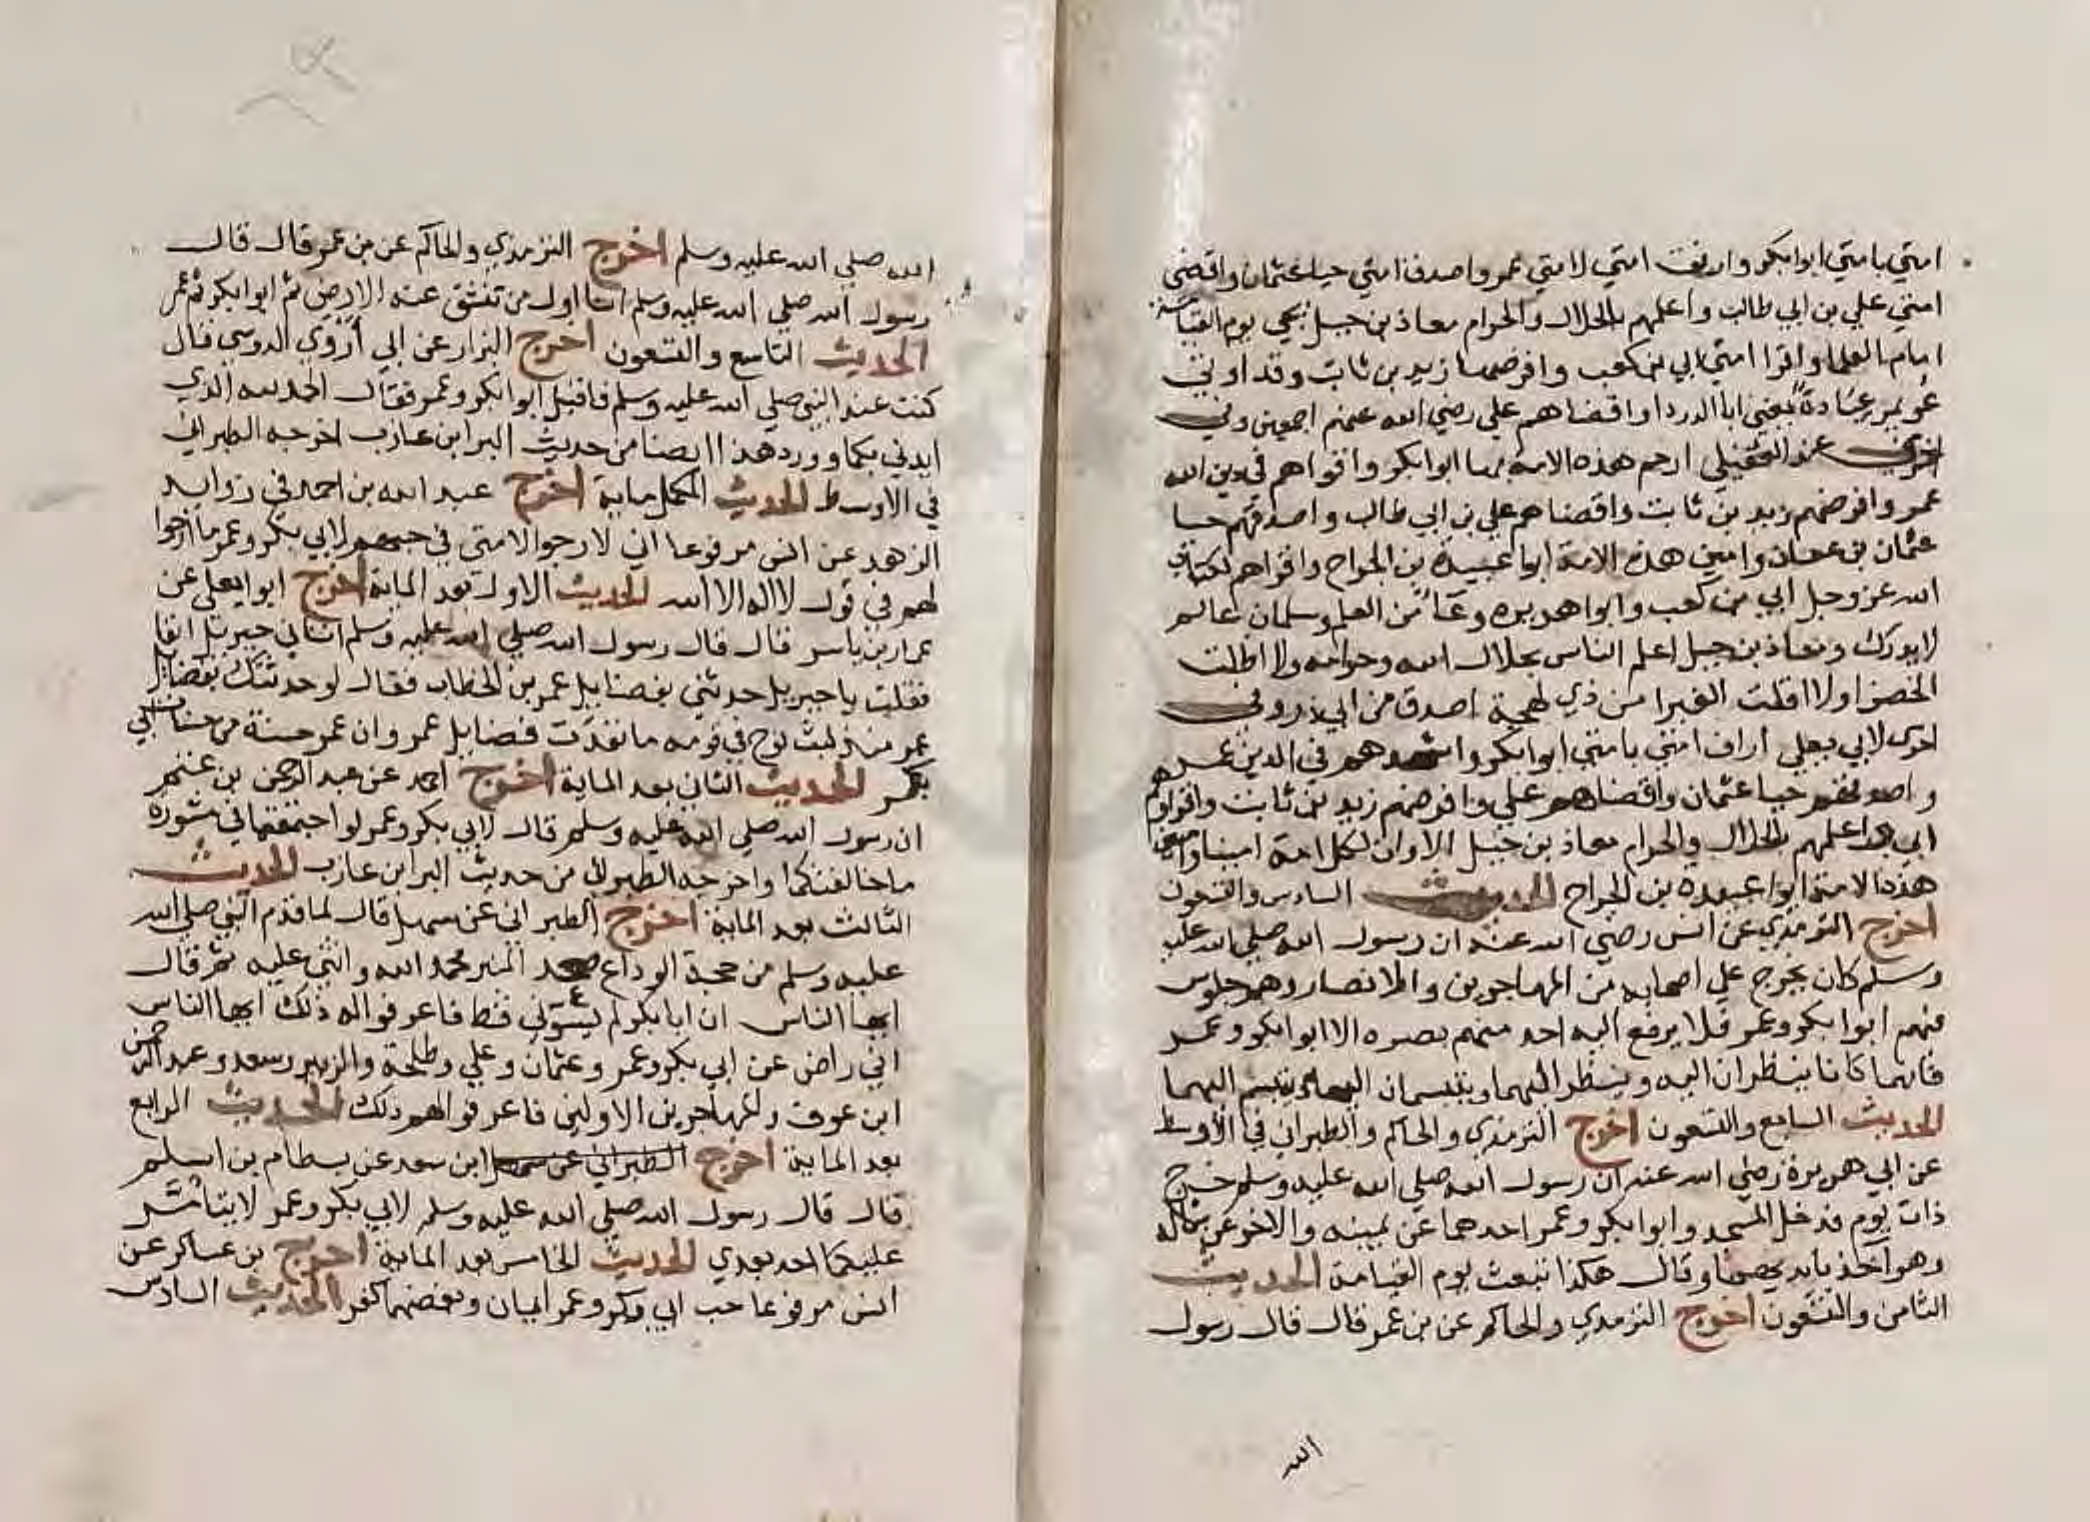 امتي بامتي ابوابكر وارفق امتي لامتي عمر واصدق امتي حيا عثمان واقضى
امتي علي بن ابي طالب واعلمهم بالحلال والحرام معاذ بن جبل يجي يوم القيامة
امام العلما واقرا امتي ابي بن كعب وافرضها زيد بن ثابت وقد اوتي
عويمر عبادة يعني ابا الدردا واقضاهم علي رضي الله عنهم اجمعين وفي
اخرى عند العقيلي ارحم هذه الامة بها ابوابكر واقواهم في دين الله
عمر وافرضهم زيد بن ثابت واقضاهم علي بن ابي طالب واصدقهم حيا
عثمان بن عفان وامين هذه الامة ابوا عبيدة بن الجراح واقراهم لكتاب
الله عز وجل ابي بن كعب وابوا هريره وعاً من العلم وسلمان عالم
لا يدرك ومعاذ بن جبل اعلم الناس بحلال الله وحرامه ولا اظلت
الخضرا ولا اقلت الغبرا من ذي لهجة اصدق من ابي ذر وفي
اخرى لابي يعلي اراف امتي بامتي ابوابكر واشدهم في الدين عمر
واصدقهم حيا عثمان واقضاهم علي وافرضهم زيد بن ثابت واقراهم
ابي واعلمهم بالحلال والحرام معاذ بن جبل الا وان لكل امة امينا وامين
هذه الامة ابوا عبيده بن الجراح الحديث السادس والتسعون
اخرج الترمذي عن انس رضي الله عنه ان رسول الله صلي الله عليه
وسلم كان يخرج علي اصحابه من المهاجرين والانصار وهم جلوس
فيهم ابوا بكر وعمر فلا يرفع اليه احد منهم بصره الا ابوابكر وعمر
فانهما كانا ينظران اليه وينظر اليهما ويتبسمان اليه ويتبسم اليهما
الحديث السابع والتسعون اخرج الترمذي والحاكم والطبراني في الاوسط
عن ابي هريرة رضي الله عنه ان رسول الله صلي الله عليه وسلم خرج
ذات يوم فدخل المسجد وابوابكر وعمر احدهما عن يمينه والاخر عن شماله
وهو آخذ بايديهما وقال هكذا نبعث يوم القيامة الحديث
الثامن والتسعون اخرج الترمذي والحاكم عن بن عمر قال قال رسول
الله
الله صلي الله عليه وسلم اخرج الترمذي والحاكم عن بن عمر قال قال
رسول الله صلي الله عليه وسلم انا اول من تنشق عنه الارض ثم ابوابكر ثم عمر
الحديث التاسع والتسعون اخرج البزار عن ابي أروي الدوسي قال
كنت عند النبي صلي الله عليه وسلم فاقبل ابوابكر وعمر فقال الحمد لله الذي
ايدني بكما وورد هذا ايضا من حديث البرا بن عازب اخرجه الطبراني
في الاوسط الحديث المكمل ماية اخرج عبد الله بن احمد في زوايد
الزهد عن انس مرفوعا اني لارجوا لامتي في حبهم لابي بكر وعمر ما ارجوا
لهم في قول لا اله الا الله الحديث الاول بعد الماية اخرج ابوا يعلي عن
عمار بن ياسر قال قال رسول الله صلي الله عليه وسلم اتاني جبريل انفا
فقلت يا جبريل حدثني بفضايل عمر بن الخطاب فقال لو حدثتك بفضايل
عمر منذ لبث نوح في قومه ما نفدت فضايل عمر وان عمر حسنة من حسنات ابي
بكر الحديث الثاني بعد الماية اخرج احمد عن عبد الرحمن بن غنم
ان رسول الله صلي الله عليه وسلم قال لابي بكر وعمر لو اجتمعتما في مشورة
ما خالفتكما واخرجه الطبراني من حديث البرا بن عازب الحديث
الثالث بعد الماية اخرج الطبراني عن سهل قال لما قدم النبي صلي الله
عليه وسلم من حجة الوداع صعد المنبر فحمد الله واثني عليه ثم قال
ايها الناس ان ابا بكر لم يسؤني قط فاعرفوا له ذلك ايها الناس
اني راض عن ابي بكر وعمر وعثمان وعلي وطلحة والزبير وسعد وعبد الرحمن
ابن عوف والمهاجرين الاولين فاعرفوا لهم ذلك الحديث الرابع
بعد الماية اخرج الطبراني عن سهل ابن سعد عن بسطام بن اسلم
قال قال رسول الله صلي الله عليه وسلم لابي بكر وعمر لا يتامر
عليكما احد بعدي الحديث الخامس بعد الماية اخرج بن عساكر عن
انس مرفوعا حب ابي بكر وعمر ايمان وبغضهما كفر الحديث السادس